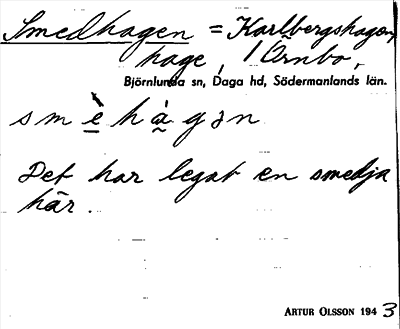 Smedhagen = Karlbergshagen,
hage, 1 Ornbo,
Björnlunda sn, Daga hd, Södermanlands län.
s m è h à g ə n
Det har legat en smedja
här.
ARTUR OLSSON 1943